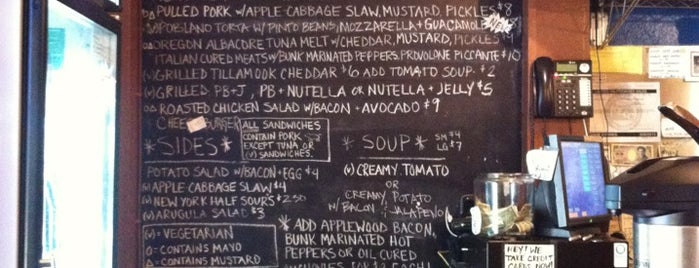 PULLED PORK W/APPLE-CABBAGE SLAW, MUSTARD, PICKLES $8
POBLANO TORTA W/PINTO BEANS, MOZZARELLA + GUACAMOLE
OREGON ALBACORE TUNA MELT W/CHEDDAR, MUSTARD, PICKLES
ITALIAN CURED MEATS W/BUNK MARINATED PEPPERS, PROVOLONE PICCANTE $10
(V) GRILLED TILLAMOOK CHEDDAR $6 ADD TOMATO SOUP $2
(V) GRILLED PB+J, PB + NUTELLA OR NUTELLA + JELLY $5
ROASTED CHICKEN SALAD W/BACON + AVOCADO $9
ALL SANDWICHES
CONTAIN PORK
EXCEPT TUNA OR
(V) SANDWICHES.
*SIDES*
POTATO SALAD W/BACON + EGG $4
APPLE-CABBAGE SLAW $4
NEW YORK HALF SOURS $2.50
ARUGULA SALAD $3
(V)= VEGETARIAN
O= CONTAINS MAYO
Δ= CONTAINS MUSTARD
* SOUP *
SM $4
LG $7
(V) CREAMY TOMATO
OR
CREAMY POTATO
W/BACON + JALAPEÑO
* ADD APPLEWOOD BACON,
BUNK MARINATED HOT
PEPPERS OR OIL CURED
FOR $2 EACH!
HEY! WE
TAKE CREDIT
CARDS NOW!